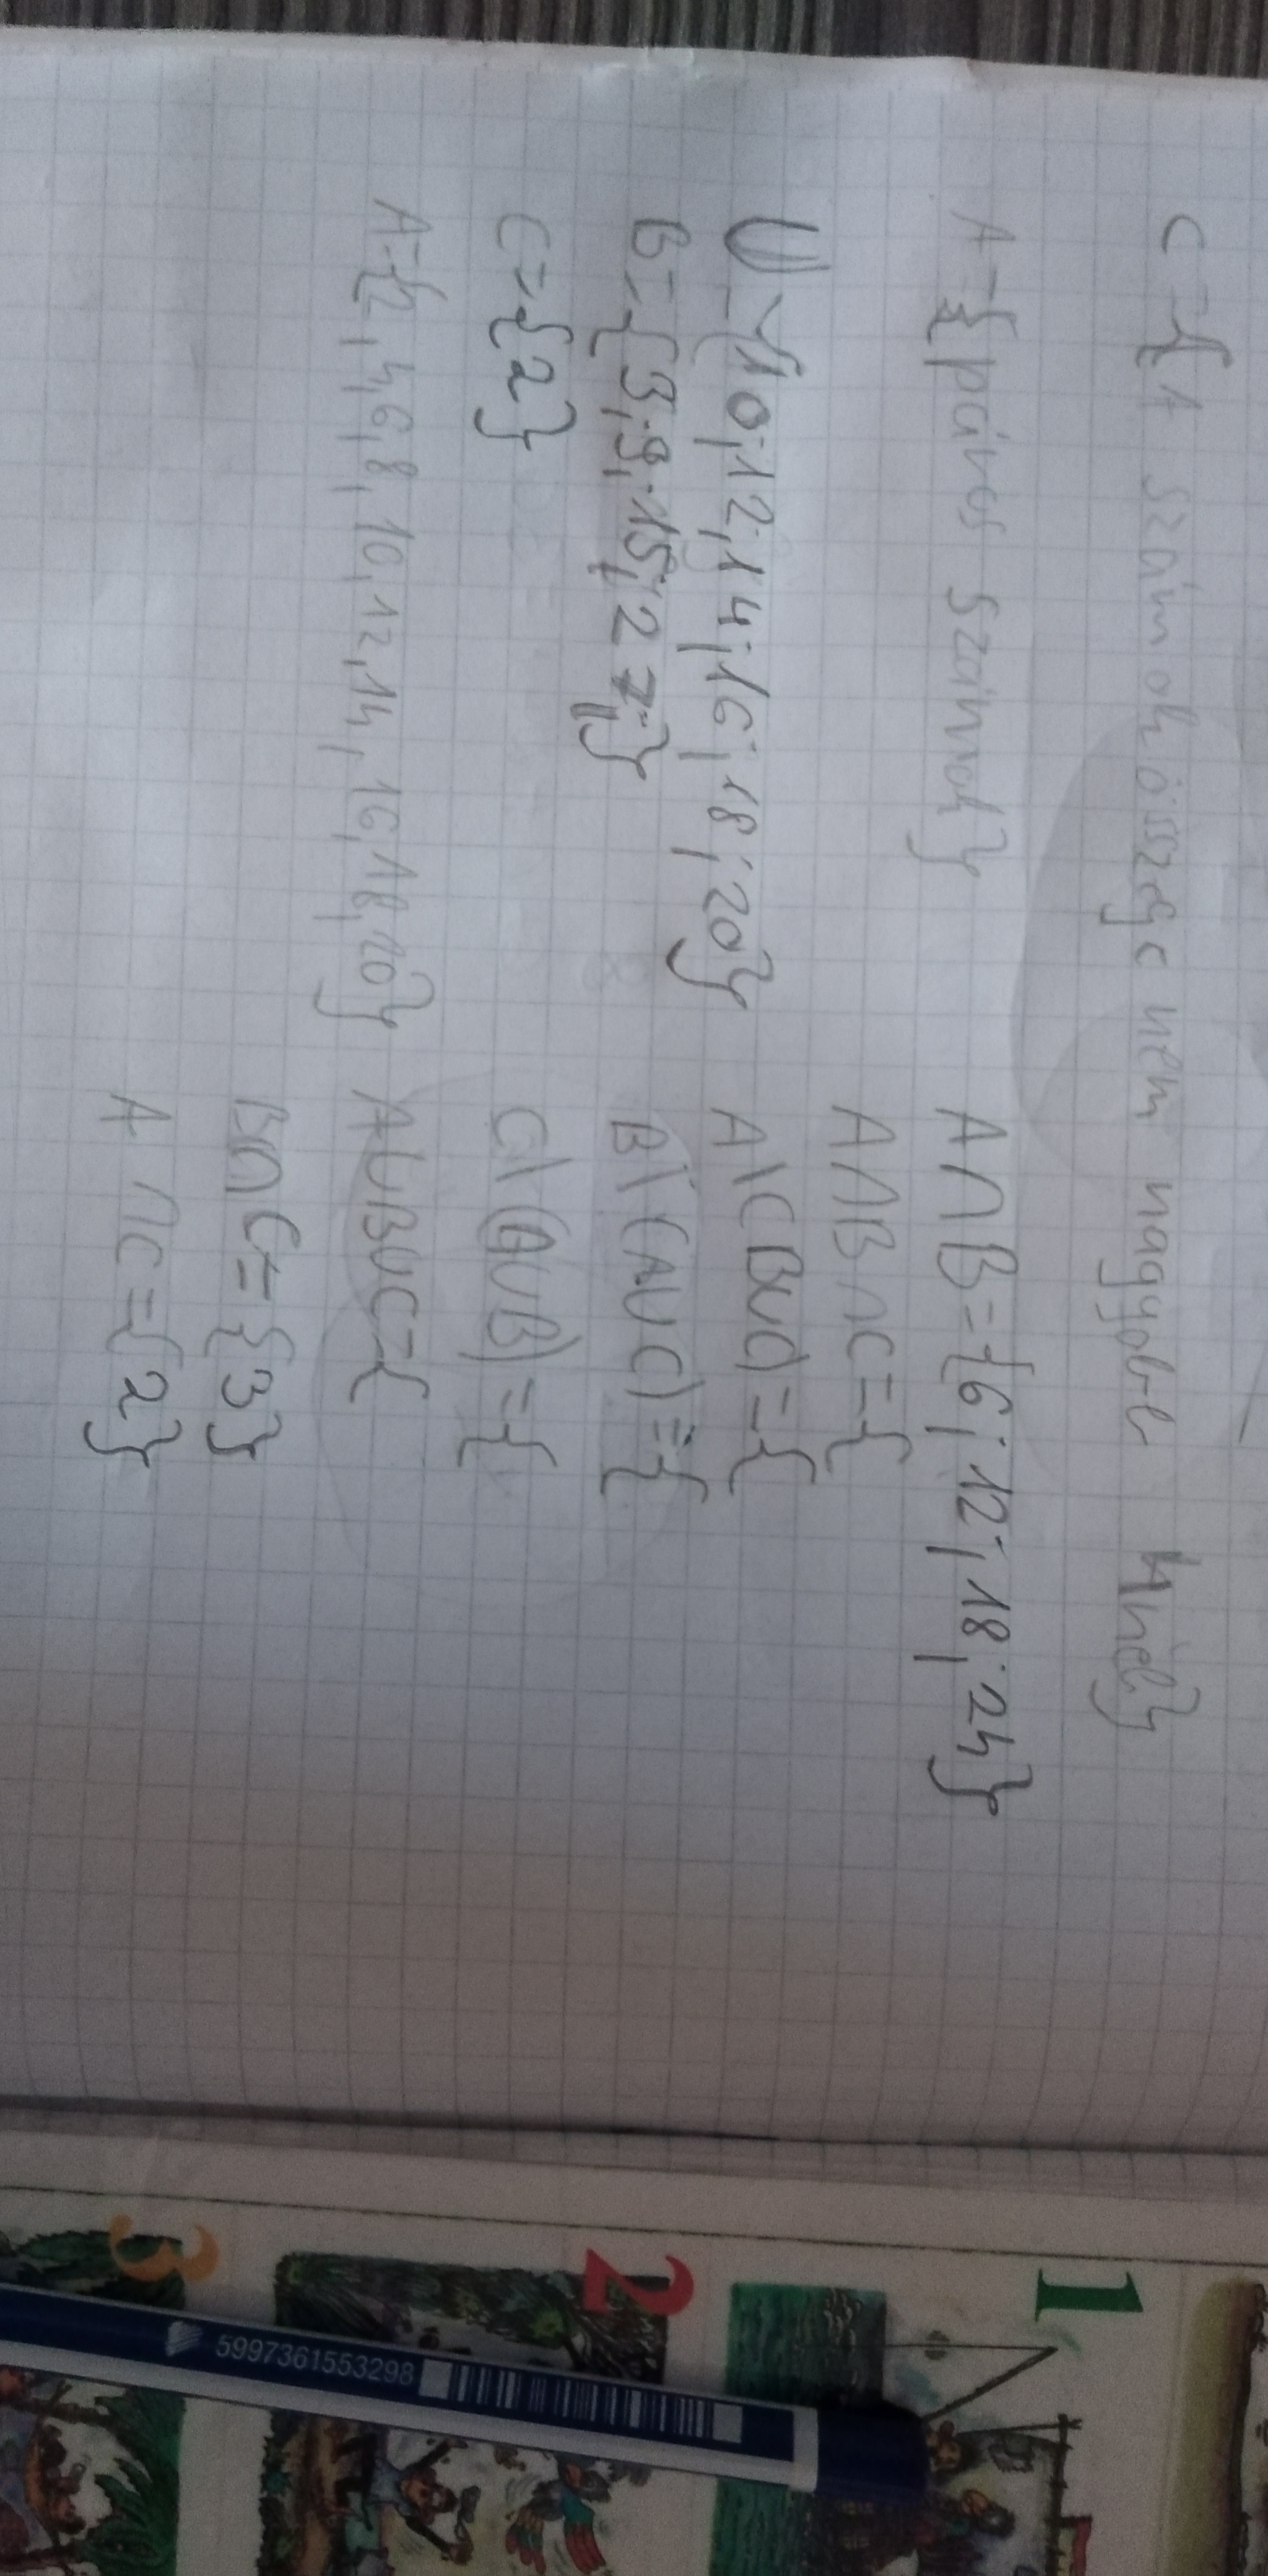 C={A számok összege nem nagyobb
A={páros számok}
U={10;12;14;16;18;20}
B={3;9;15;27;}
C={2}
A={2,4,6,8,10,12,14,16,18,20}
A∩B={6;12;18;24}
A∩B∩C={
A\(B∪C)={
B\(A∪C)={
C\(A∪B)={
A∪B∪C={
B∩C={3}
A∩C={2}
1
2
3
5997361553298